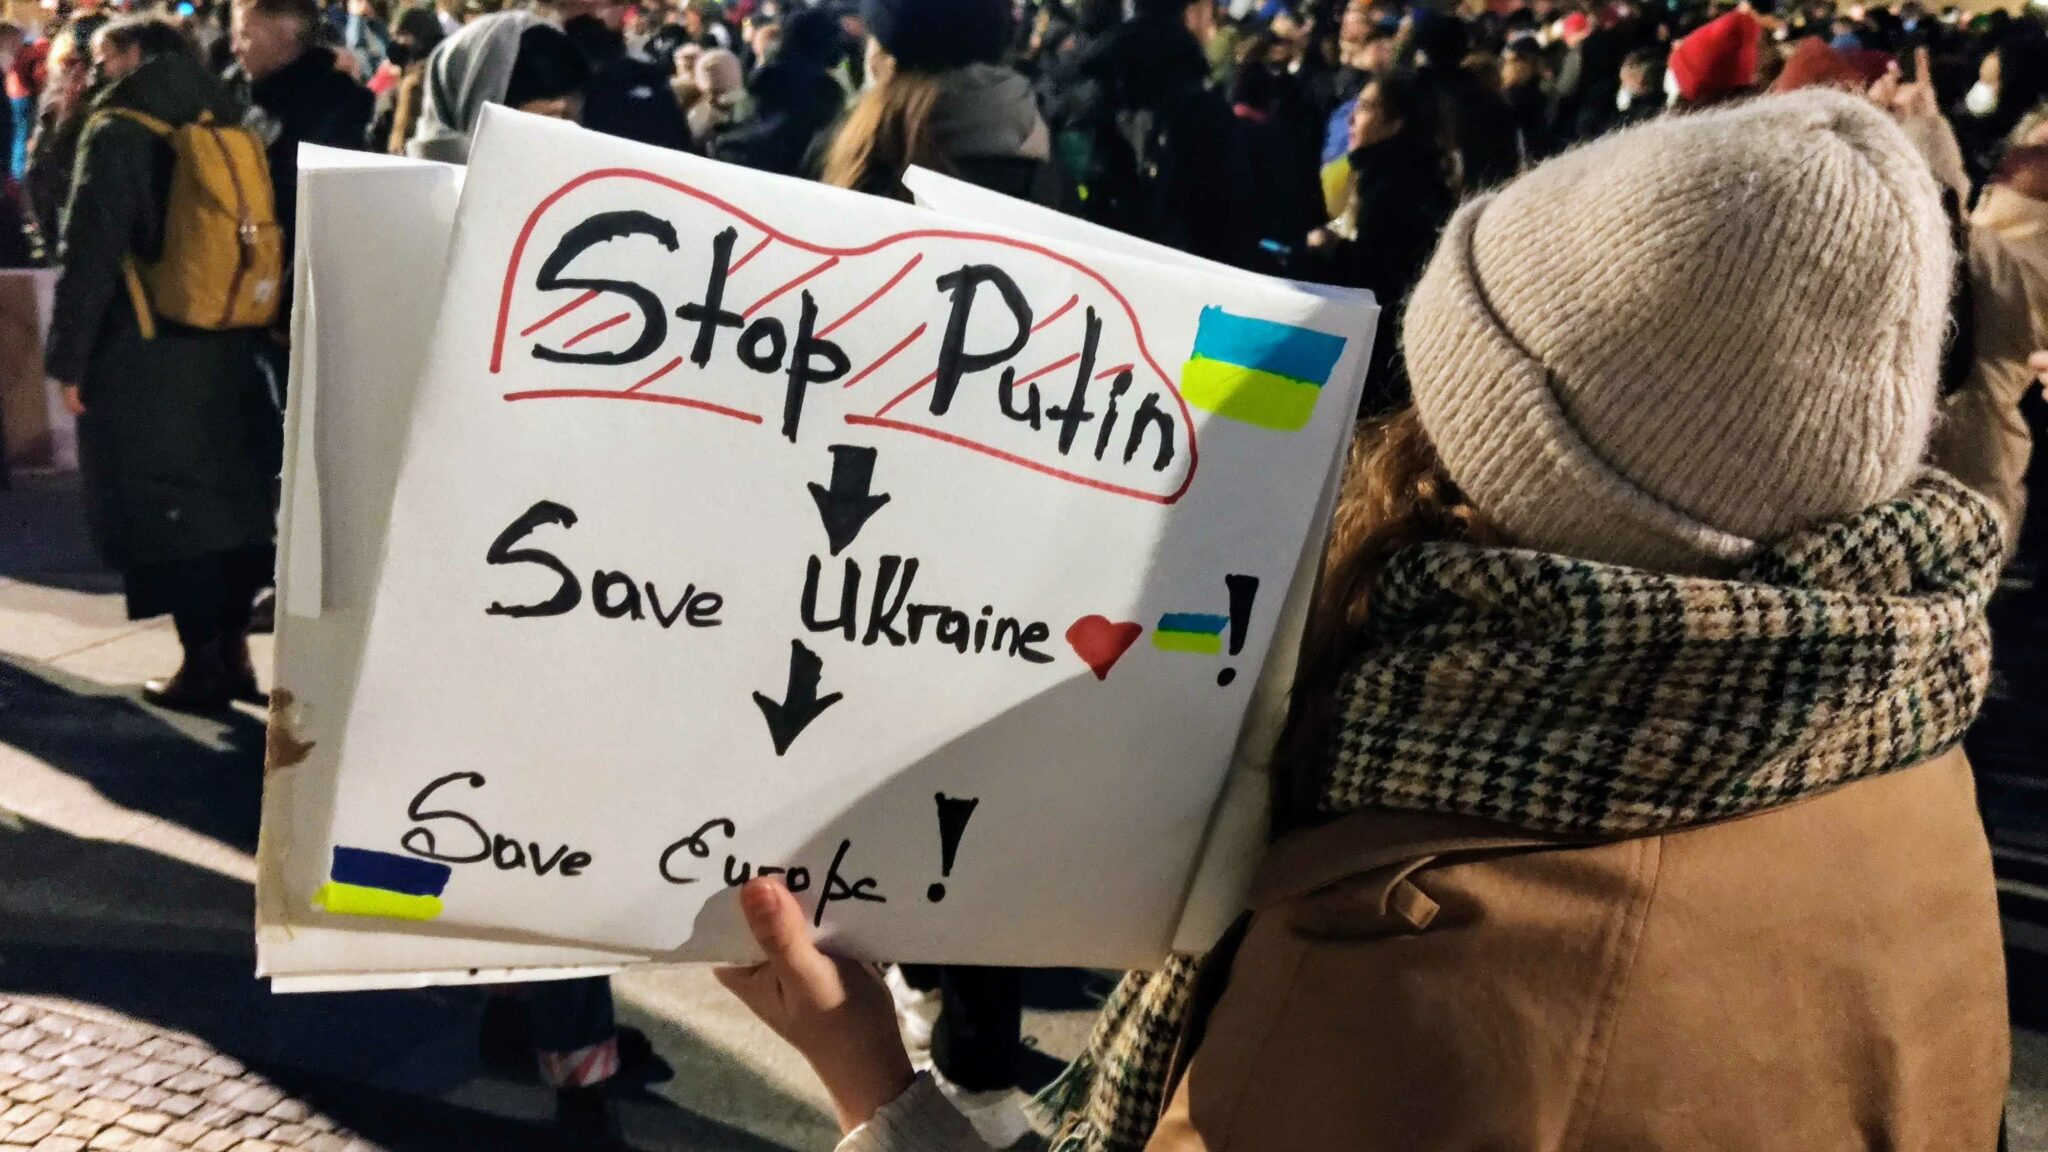 Stop Putin
Save Ukraine!
Save Europe!